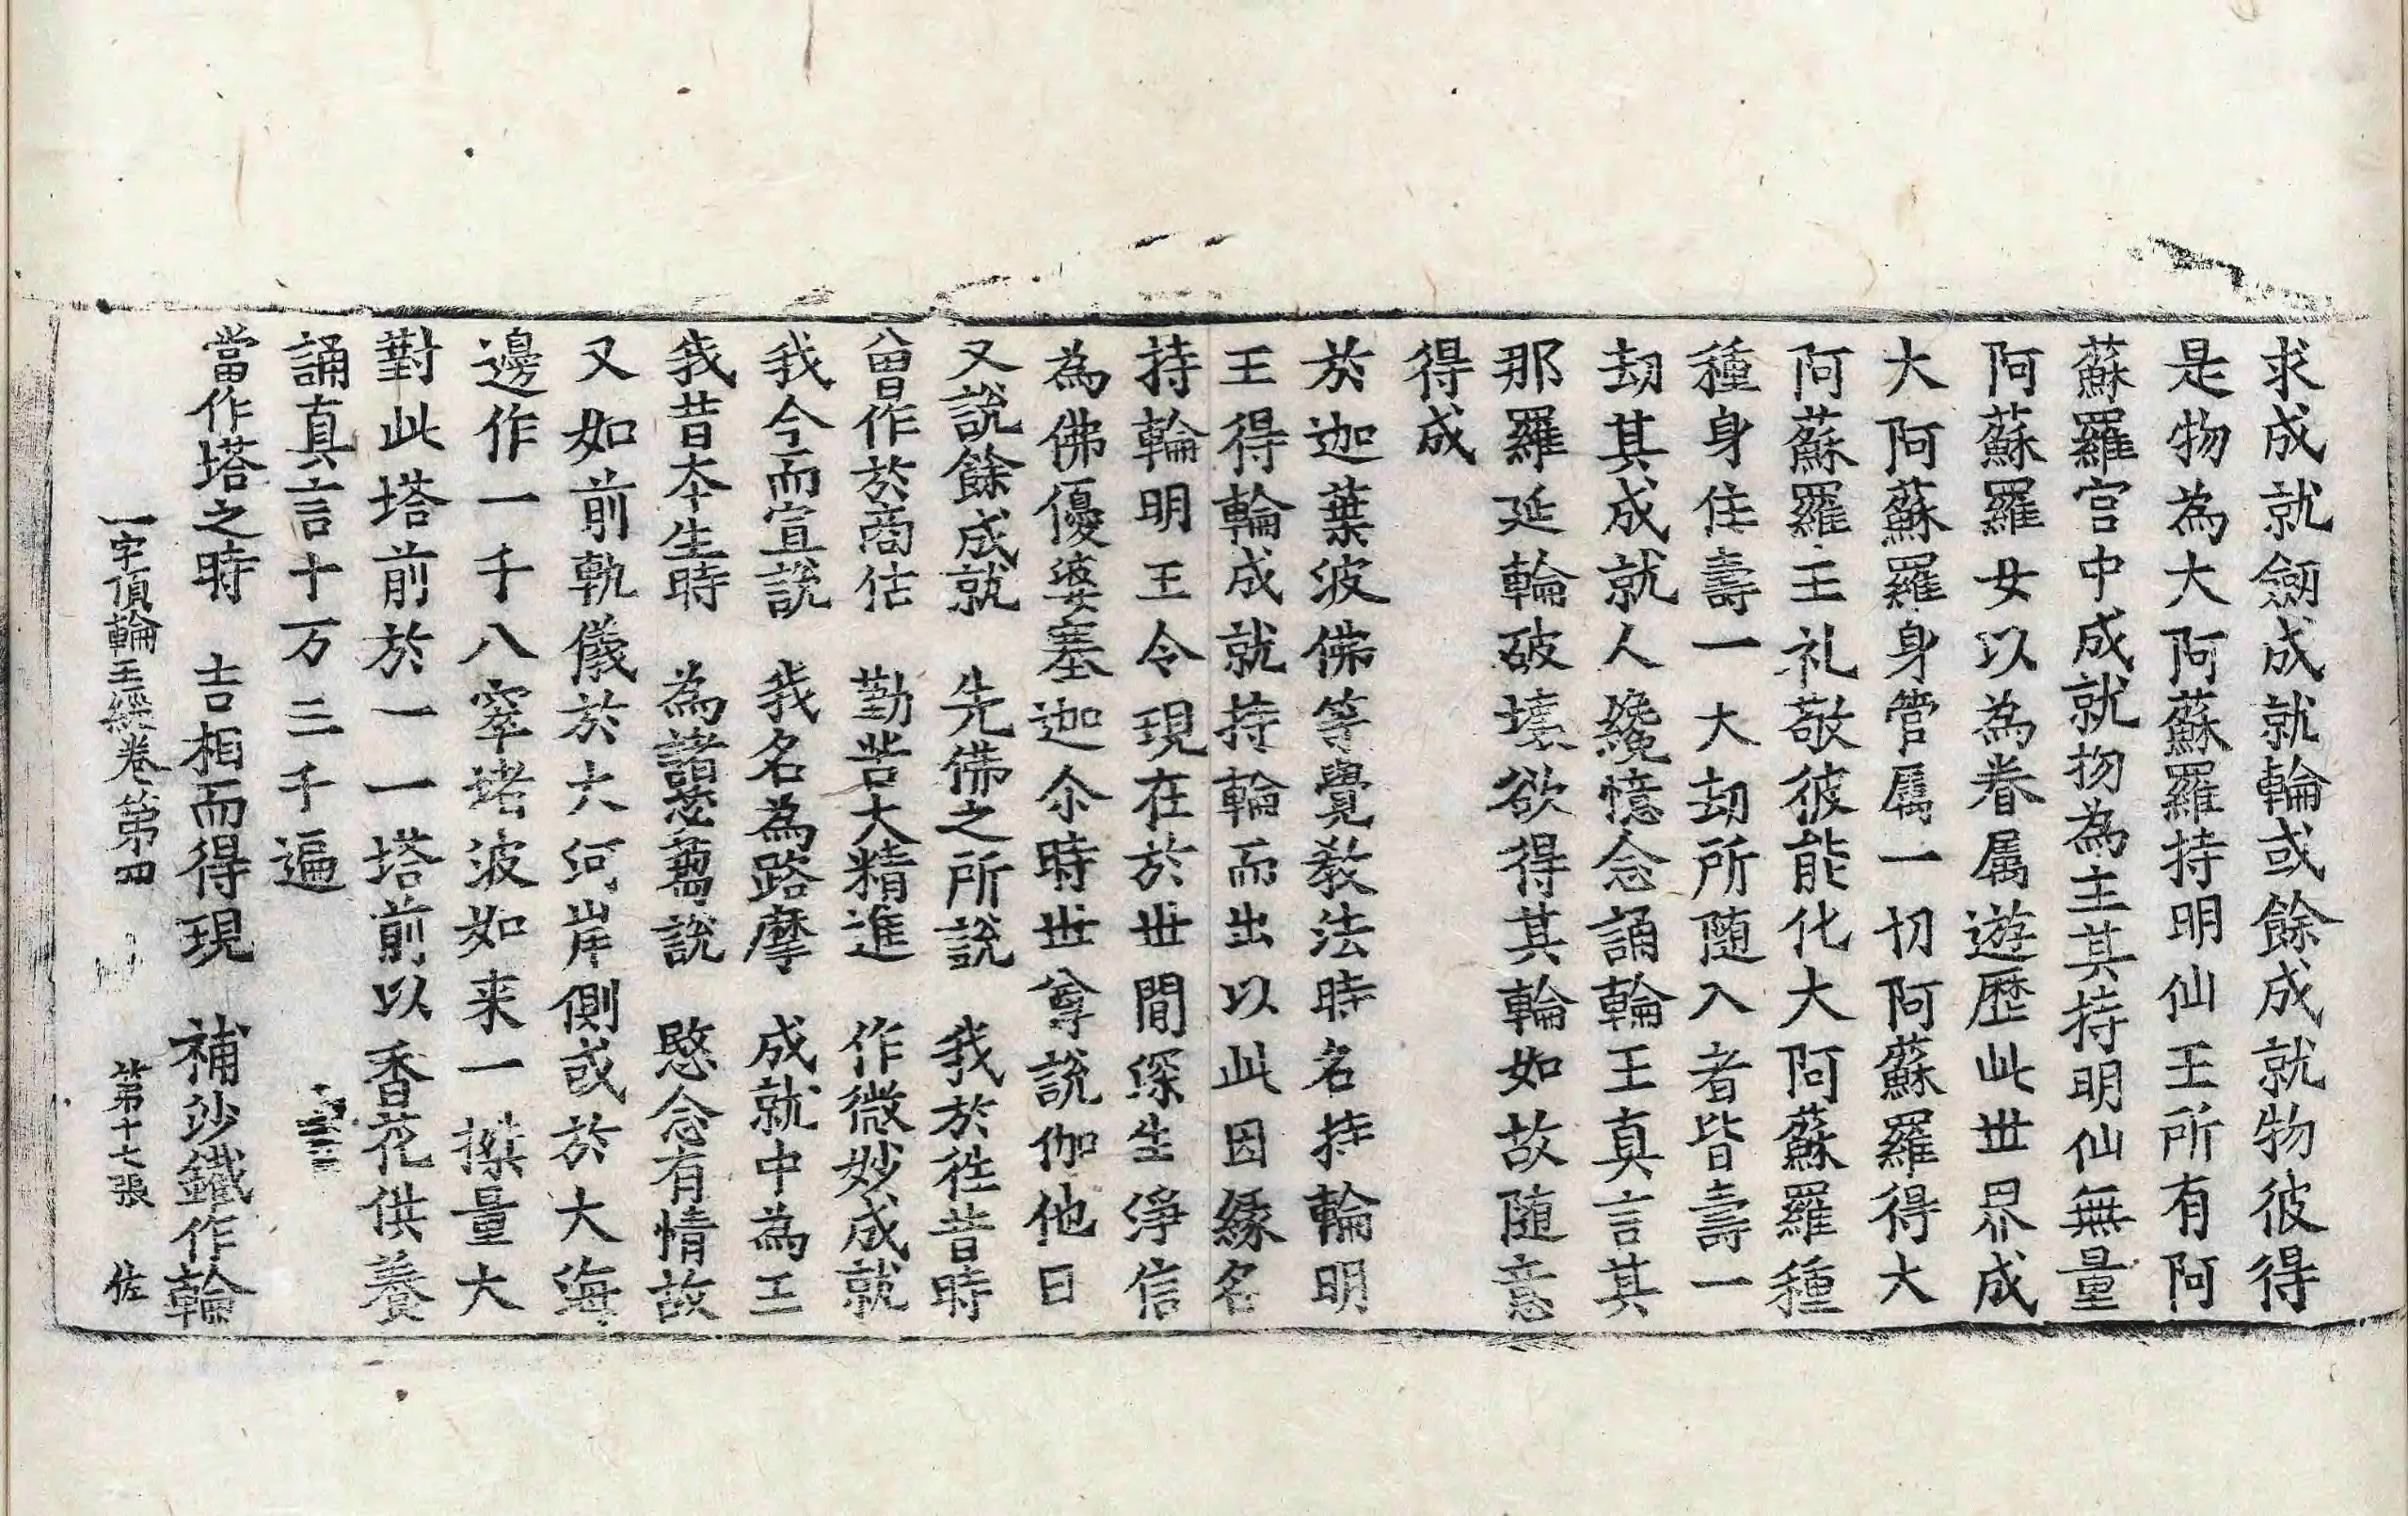 求成就劔成就輪或餘成就物彼得
是物為大阿蘇羅持明仙王所有阿
蘇羅宮中成就物為主其持明仙無量
阿蘇羅女以為眷屬遊歷此世界成
大阿蘇羅身管屬一切阿蘇羅得大
阿蘇羅王礼敬彼能化大阿蘇羅種
種身住壽一大劫所随入者皆壽一
劫其成就人纔憶念誦輪王真言其
那羅延輪破壞欲得其輪如故随意
得成
於迦葉波佛等覺教法時名持輪明
王得輪成就持輪而出以此因緣名
持輪明王令現在於世間深生淨信
為佛優婆塞迦尒時世尊說伽他曰
又說餘成就　先佛之所說　我於徃昔時
曾作於商估　勤苦大精進　作微妙成就
我今而宣說　我名為路摩　成就中為王
我昔本生時　為諸苾蒭說　愍念有情故
又如前軌儀於大河岸側或於大海
邊作一千八窣堵波如来一搩量大
對此塔前於一一塔前以香花供養
誦真言十万三千遍
當作塔之時　吉相而得現　補沙鐵作輪
一字頂輪王經卷第四　第十七張　佐